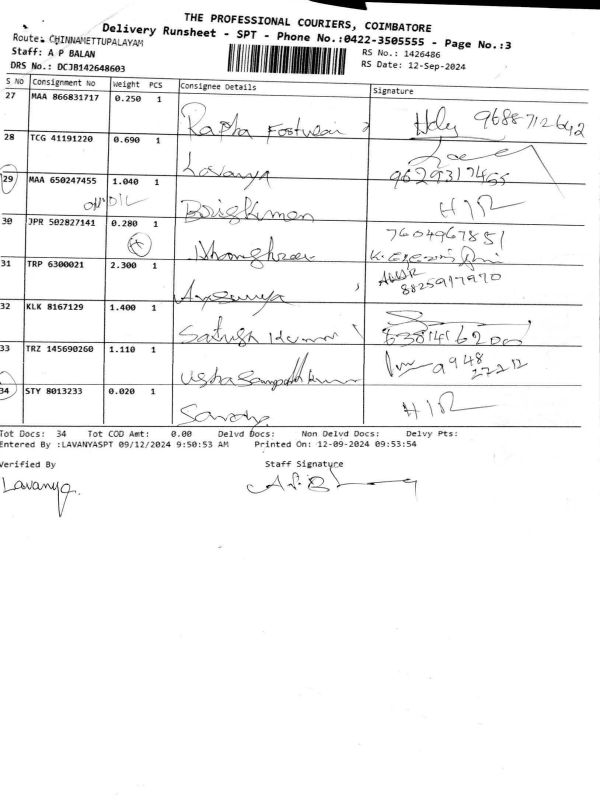 THE PROFESSIONAL COURIERS, COIMBATORE
Delivery Runsheet - SPT - Phone No.:0422-3505555 - Page No.:3
Route: CHINNAMETTUPALAYAM
Staff: A P BALAN
RS No.: 1426486
DRS No.: DCJB142648603
RS Date: 12-Sep-2024
S NO Consignment No Weight PCS Consignee Details Signature
27 MAA 866831717 0.250 1
9688712642
28 TCG 41191220 0.690 1
Lavanya
9629317455
29 MAA 650247455 1.040 1
30 JPR 502827141 0.280 1
7604967851
31 TRP 6300021 2.300 1
8825917970
32 KLK 8167129 1.400 1
Satush Kumar
33 TRZ 145690260 1.110 1
Usha Sampath kumar
34 STY 8013233 0.020 1
Tot Docs: 34 Tot COD Amt: 0.00 Delvd Docs: Non Delvd Docs: Delvy Pts:
Entered By :LAVANYASPT 09/12/2024 9:50:53 AM Printed On: 12-09-2024 09:53:54
Verified By Staff Signature
Lavanya